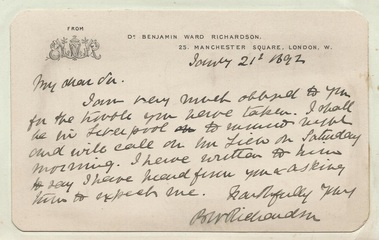 FROM
Dr BENJAMIN WARD RICHARDSON,
25, MANCHESTER SQUARE, LONDON, W.
21st 1892
My dear Sir.
I am very much obliged to you
for the trouble you have taken. I shall
be in Liverpool on night
and will call on Mr on Saturday
morning. I have written to him
to say I have heard from you & asking
him to expect me. Faithfully yours
BWRichardson